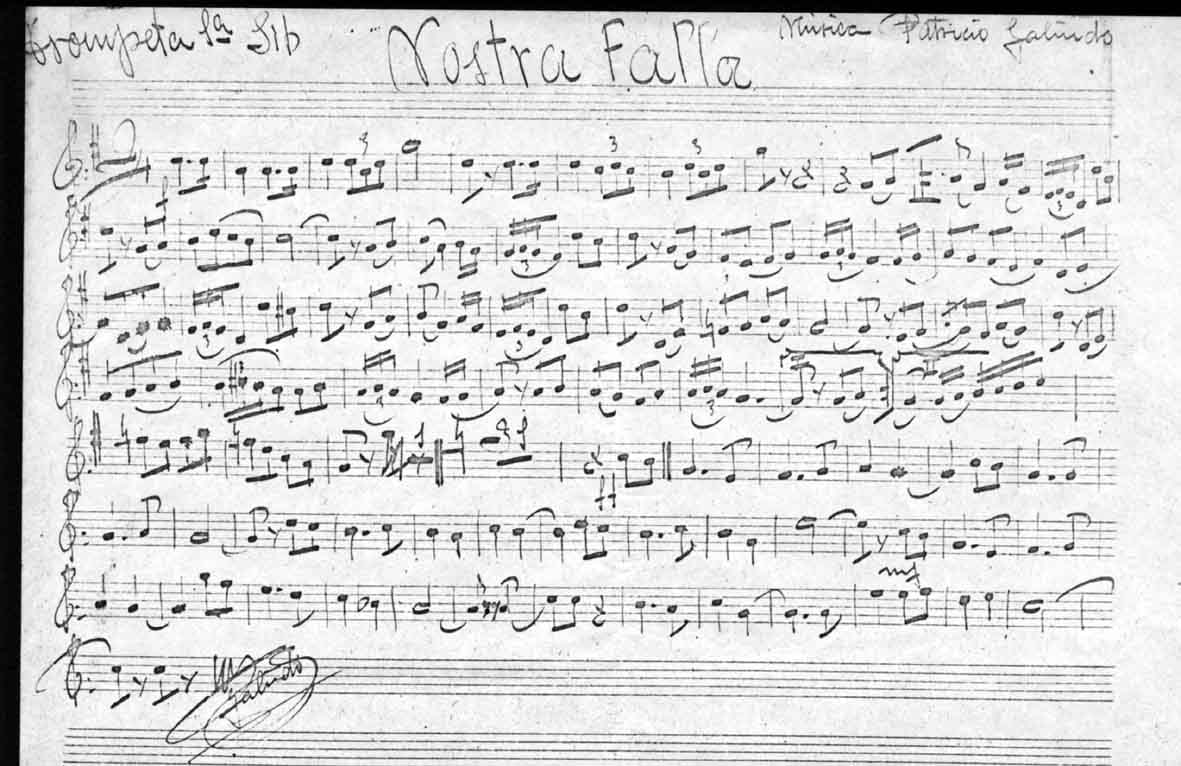 Trompeta 1ª Sib
Nostra Falla
Música Patricio Galindo
3
3
3
3
3
3
3
3
3
3
3
ff
mf
Galindo